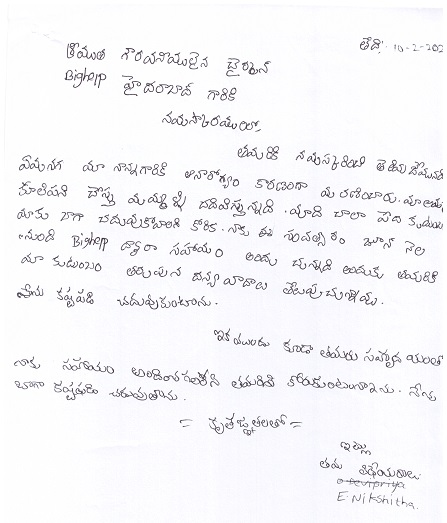 తేది: 10-2-202
శ్రీయుత గౌరవనీయులైన డైరక్టర్
Bighelp హైదరాబాద్ గారికి
నమస్కారములో,
తమరికి నమస్కరించి తెలియజేయునది
ఏమనగ మా నాన్నగారికి అనారోగ్యం కారణంగా మరణించారు. మా అమ్మ
కూలిపని చేస్తు మమ్మల్ని చదివిస్తున్నది. మాది చాలా పేద కుటుంబం
మాకు బాగా చదువుకోవాలని కోరిక. నాకు ఈ సంవత్సరం జూన్ నెల
నుండి Bighelp ద్వారా సహాయం అందు చున్నది అందుకు తమరికి
మా కుటుంబం తరుపున ధన్యవాదాలు తెలుపుచున్నాము.
నేను కష్టపడి చదువుకుంటాను.
ఇక ముందు కూడా తమరు సహృదయంతో
నాకు సహాయం అందించగలరని తమరిని కోరుకుంటున్నాను. నేను
బాగా కష్టపడి చదువుతాను.
= కృతజ్ఞతలతో =
ఇట్లు
తమ విధేయురాలు
E Nikshitha.